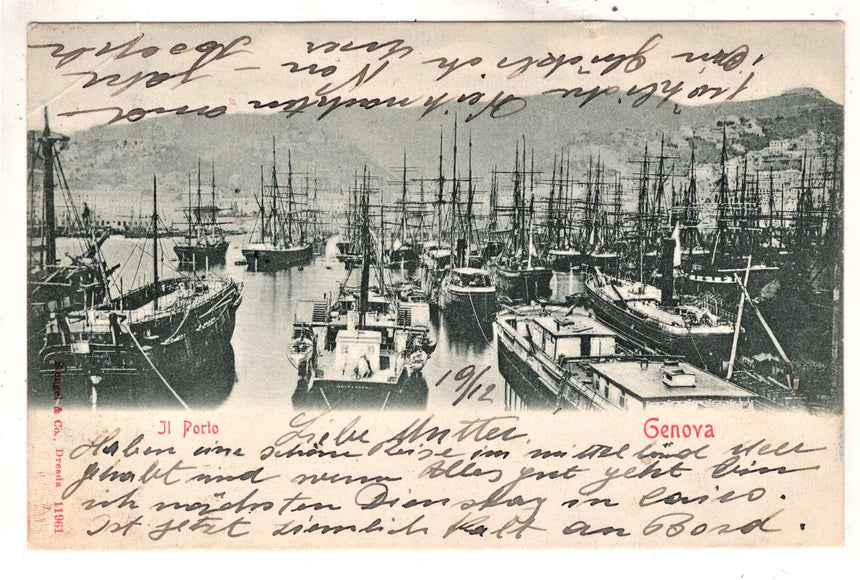 Il Porto
Genova
19/12
Liebe Mutter,
Haben eine schöne Reise im mittelländ Meer
gehabt und wenn Alles gut geht bin
ich nächsten Dienstag in Cairo.
Ist jetzt ziemlich Kalt an Bord.
fröhliche Weihnachten and
ein glücklich Neu - Jahr
Von Ihrer
Joseph
Stengel & Co., Dresda 11961